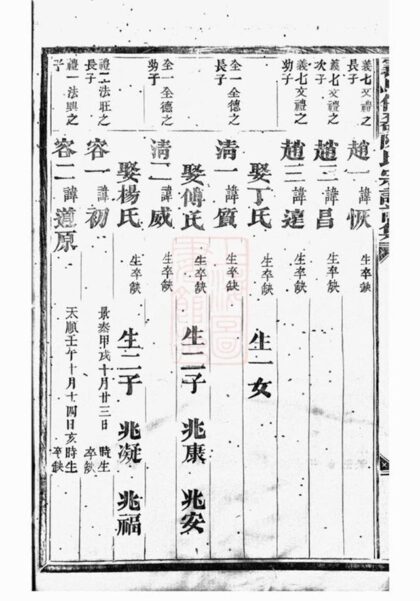 義七文禮之長子 趙一諱恢 生卒缺
義七文禮之次子 趙二諱昌 生卒缺
義七文禮之幼子 趙三諱達 生卒缺
娶丁氏 生卒缺 生一女
全一全德之長子 清一諱質 生卒缺
娶傅氏 生卒缺 生二子 兆康 兆安
全一全德之幼子 清二諱威 生卒缺
娶楊氏 生卒缺 生二子 兆凝 兆福
禮二法旺之長子 容一諱初 景泰甲戌十月廿三日 時生 卒缺
禮一法興之子 容二諱道原 天順壬午十月十四日亥時生 卒缺